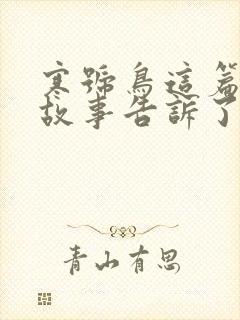 寒號鳥這篇
故事告訴了
青山有思